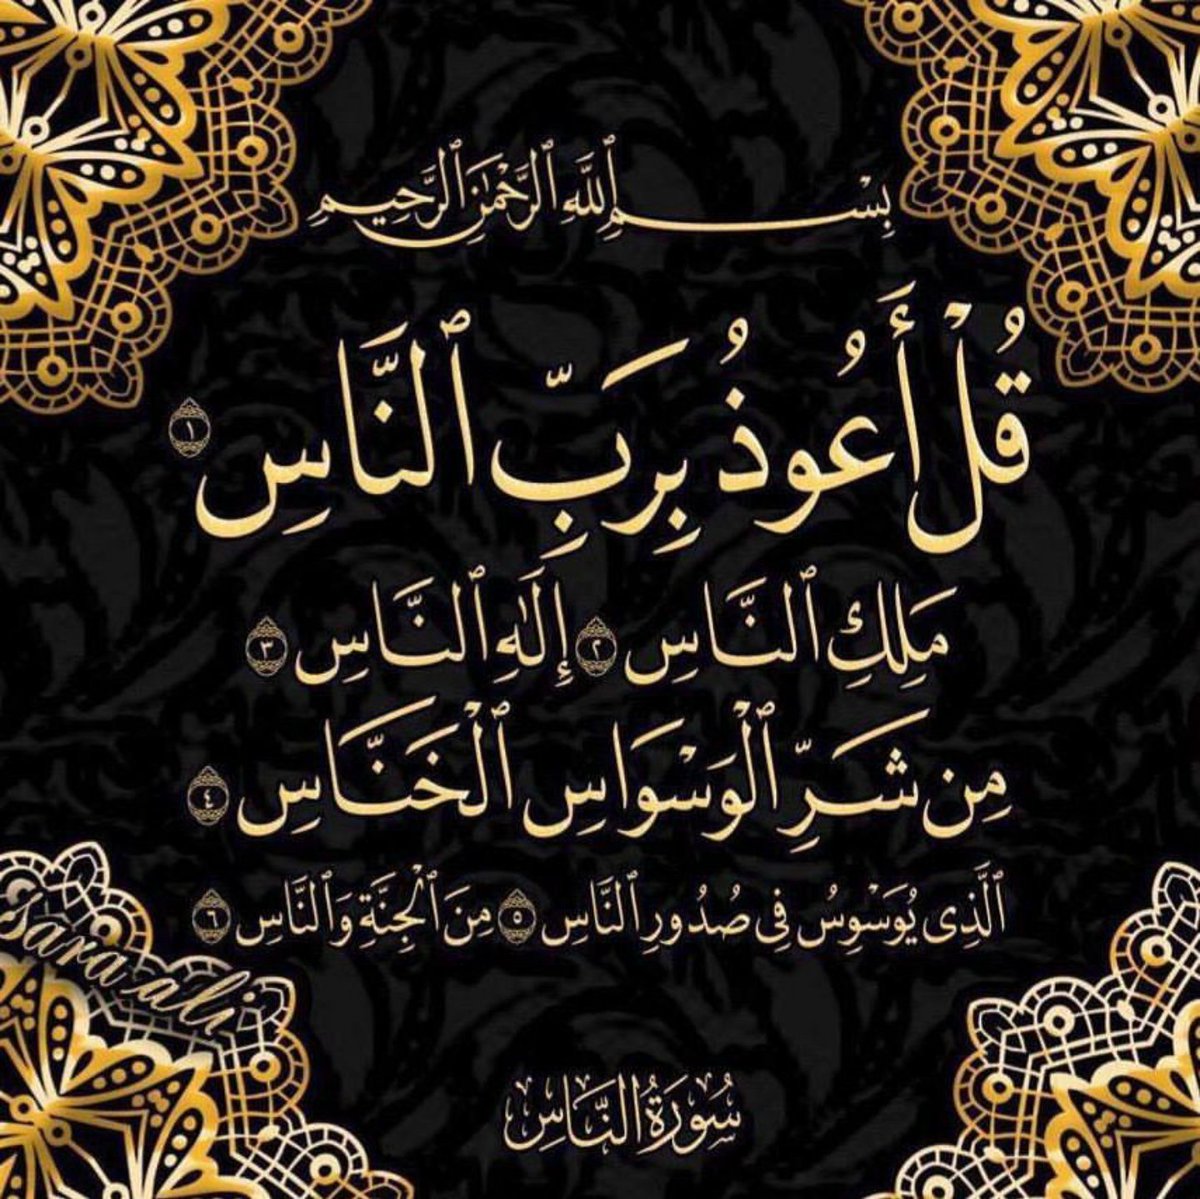 بِسْمِ ٱللَّهِ ٱلرَّحْمَٰنِ ٱلرَّحِيمِ
قُلْ أَعُوذُ بِرَبِّ ٱلنَّاسِ ١
مَلِكِ ٱلنَّاسِ ٢ إِلَٰهِ ٱلنَّاسِ ٣
مِن شَرِّ ٱلْوَسْوَاسِ ٱلْخَنَّاسِ ٤
ٱلَّذِى يُوَسْوِسُ فِى صُدُورِ ٱلنَّاسِ ٥ مِنَ ٱلْجِنَّةِ وَٱلنَّاسِ ٦
sara ali
سُورَةُ النَّاسِ